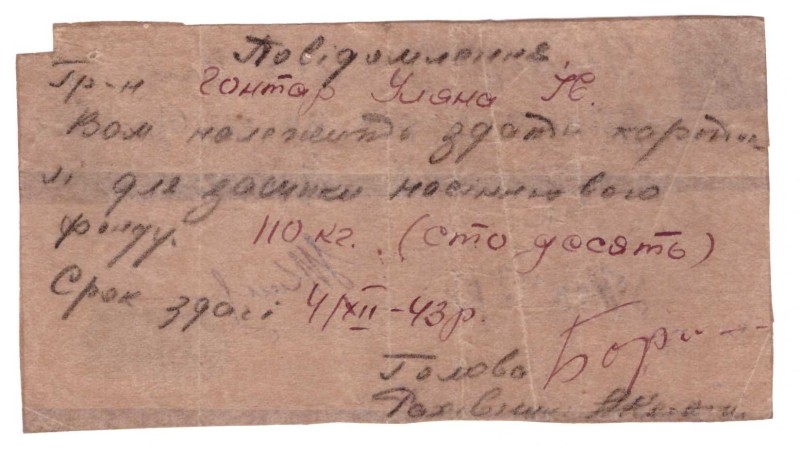 Повідомлення
Гр-н Гонтар Уляна К.
Вам належить здати картоп
лі для засипки насіннєвого
фонду. 110 кг. (сто десять)
Срок здачі 4/XII-43р.
Голова
Рахівник